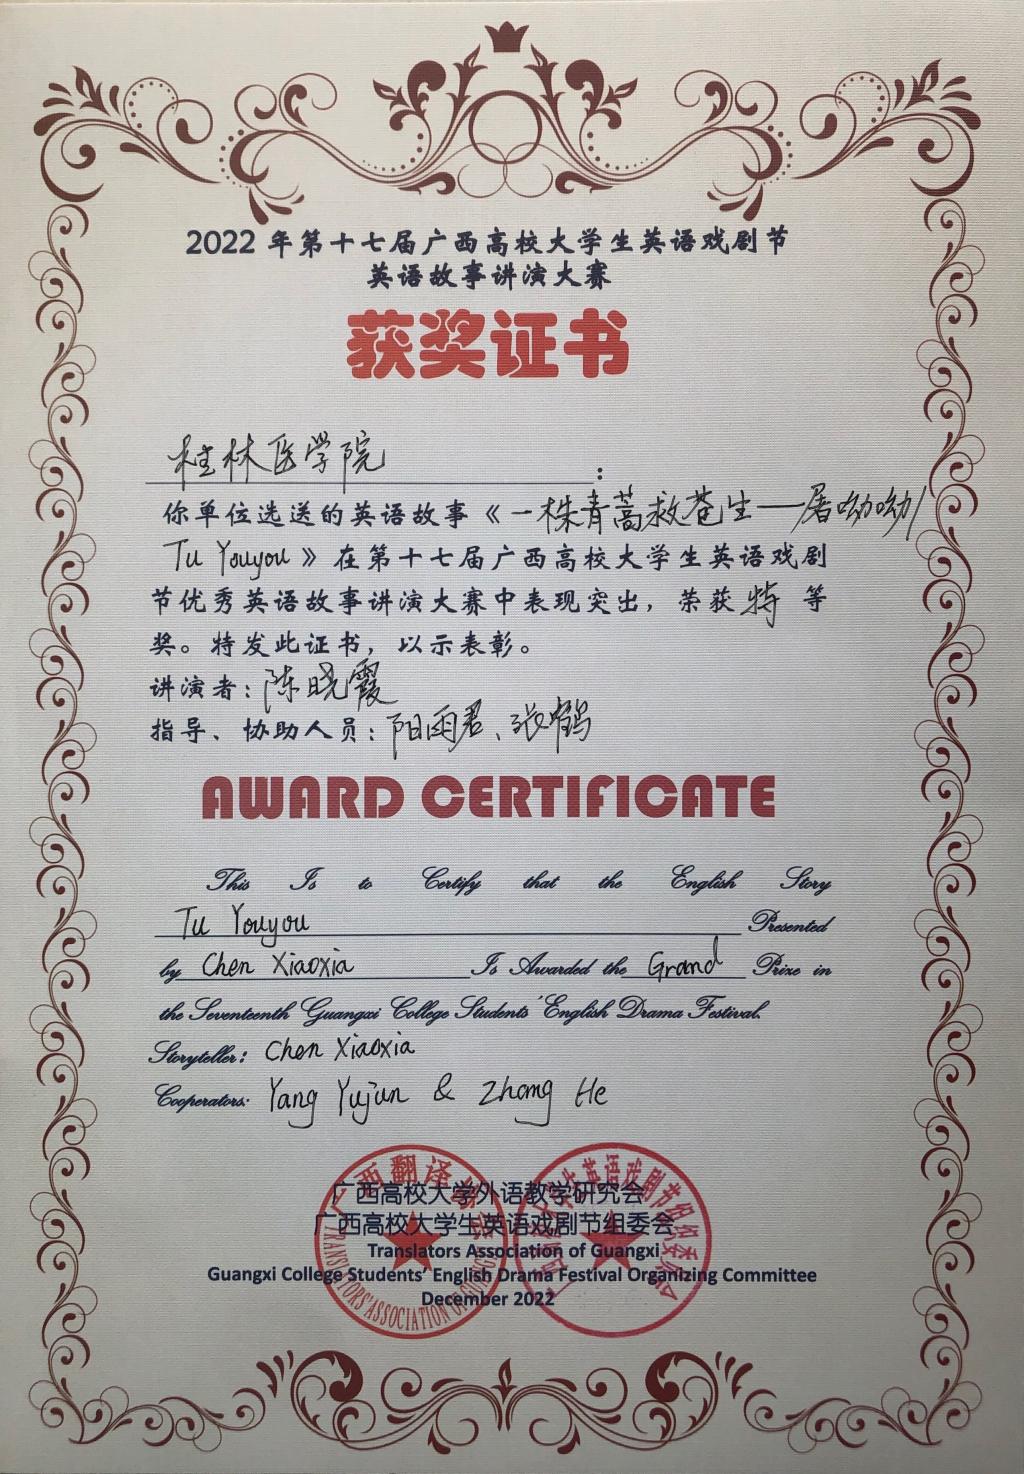 2022 年第十七届广西高校大学生英语戏剧节
英语故事讲演大赛
获奖证书
桂林医学院:
你单位选送的英语故事《一株青蒿救苍生——屠呦呦
Tu Youyou》在第十七届广西高校大学生英语戏剧
节优秀英语故事讲演大赛中表现突出，荣获特 等
奖。特发此证书，以示表彰。
讲演者：陈晓霞
指导、协助人员：阳雨君、张鹤
AWARD CERTIFICATE
This Is to Certify that the English Story
Tu Youyou Presented
by Chen Xiaoxia Is Awarded the Grand Prize in
the Seventeenth Guangxi College Students' English Drama Festival.
Storyteller: Chen Xiaoxia
Cooperators: Yang Yujun & Zhang He
广西高校大学外语教学研究会
广西高校大学生英语戏剧节组委会
Translators Association of Guangxi
Guangxi College Students' English Drama Festival Organizing Committee
December 2022
广西翻译协会
TRANSLATORS'ASSOCIATION OF GUANGXI